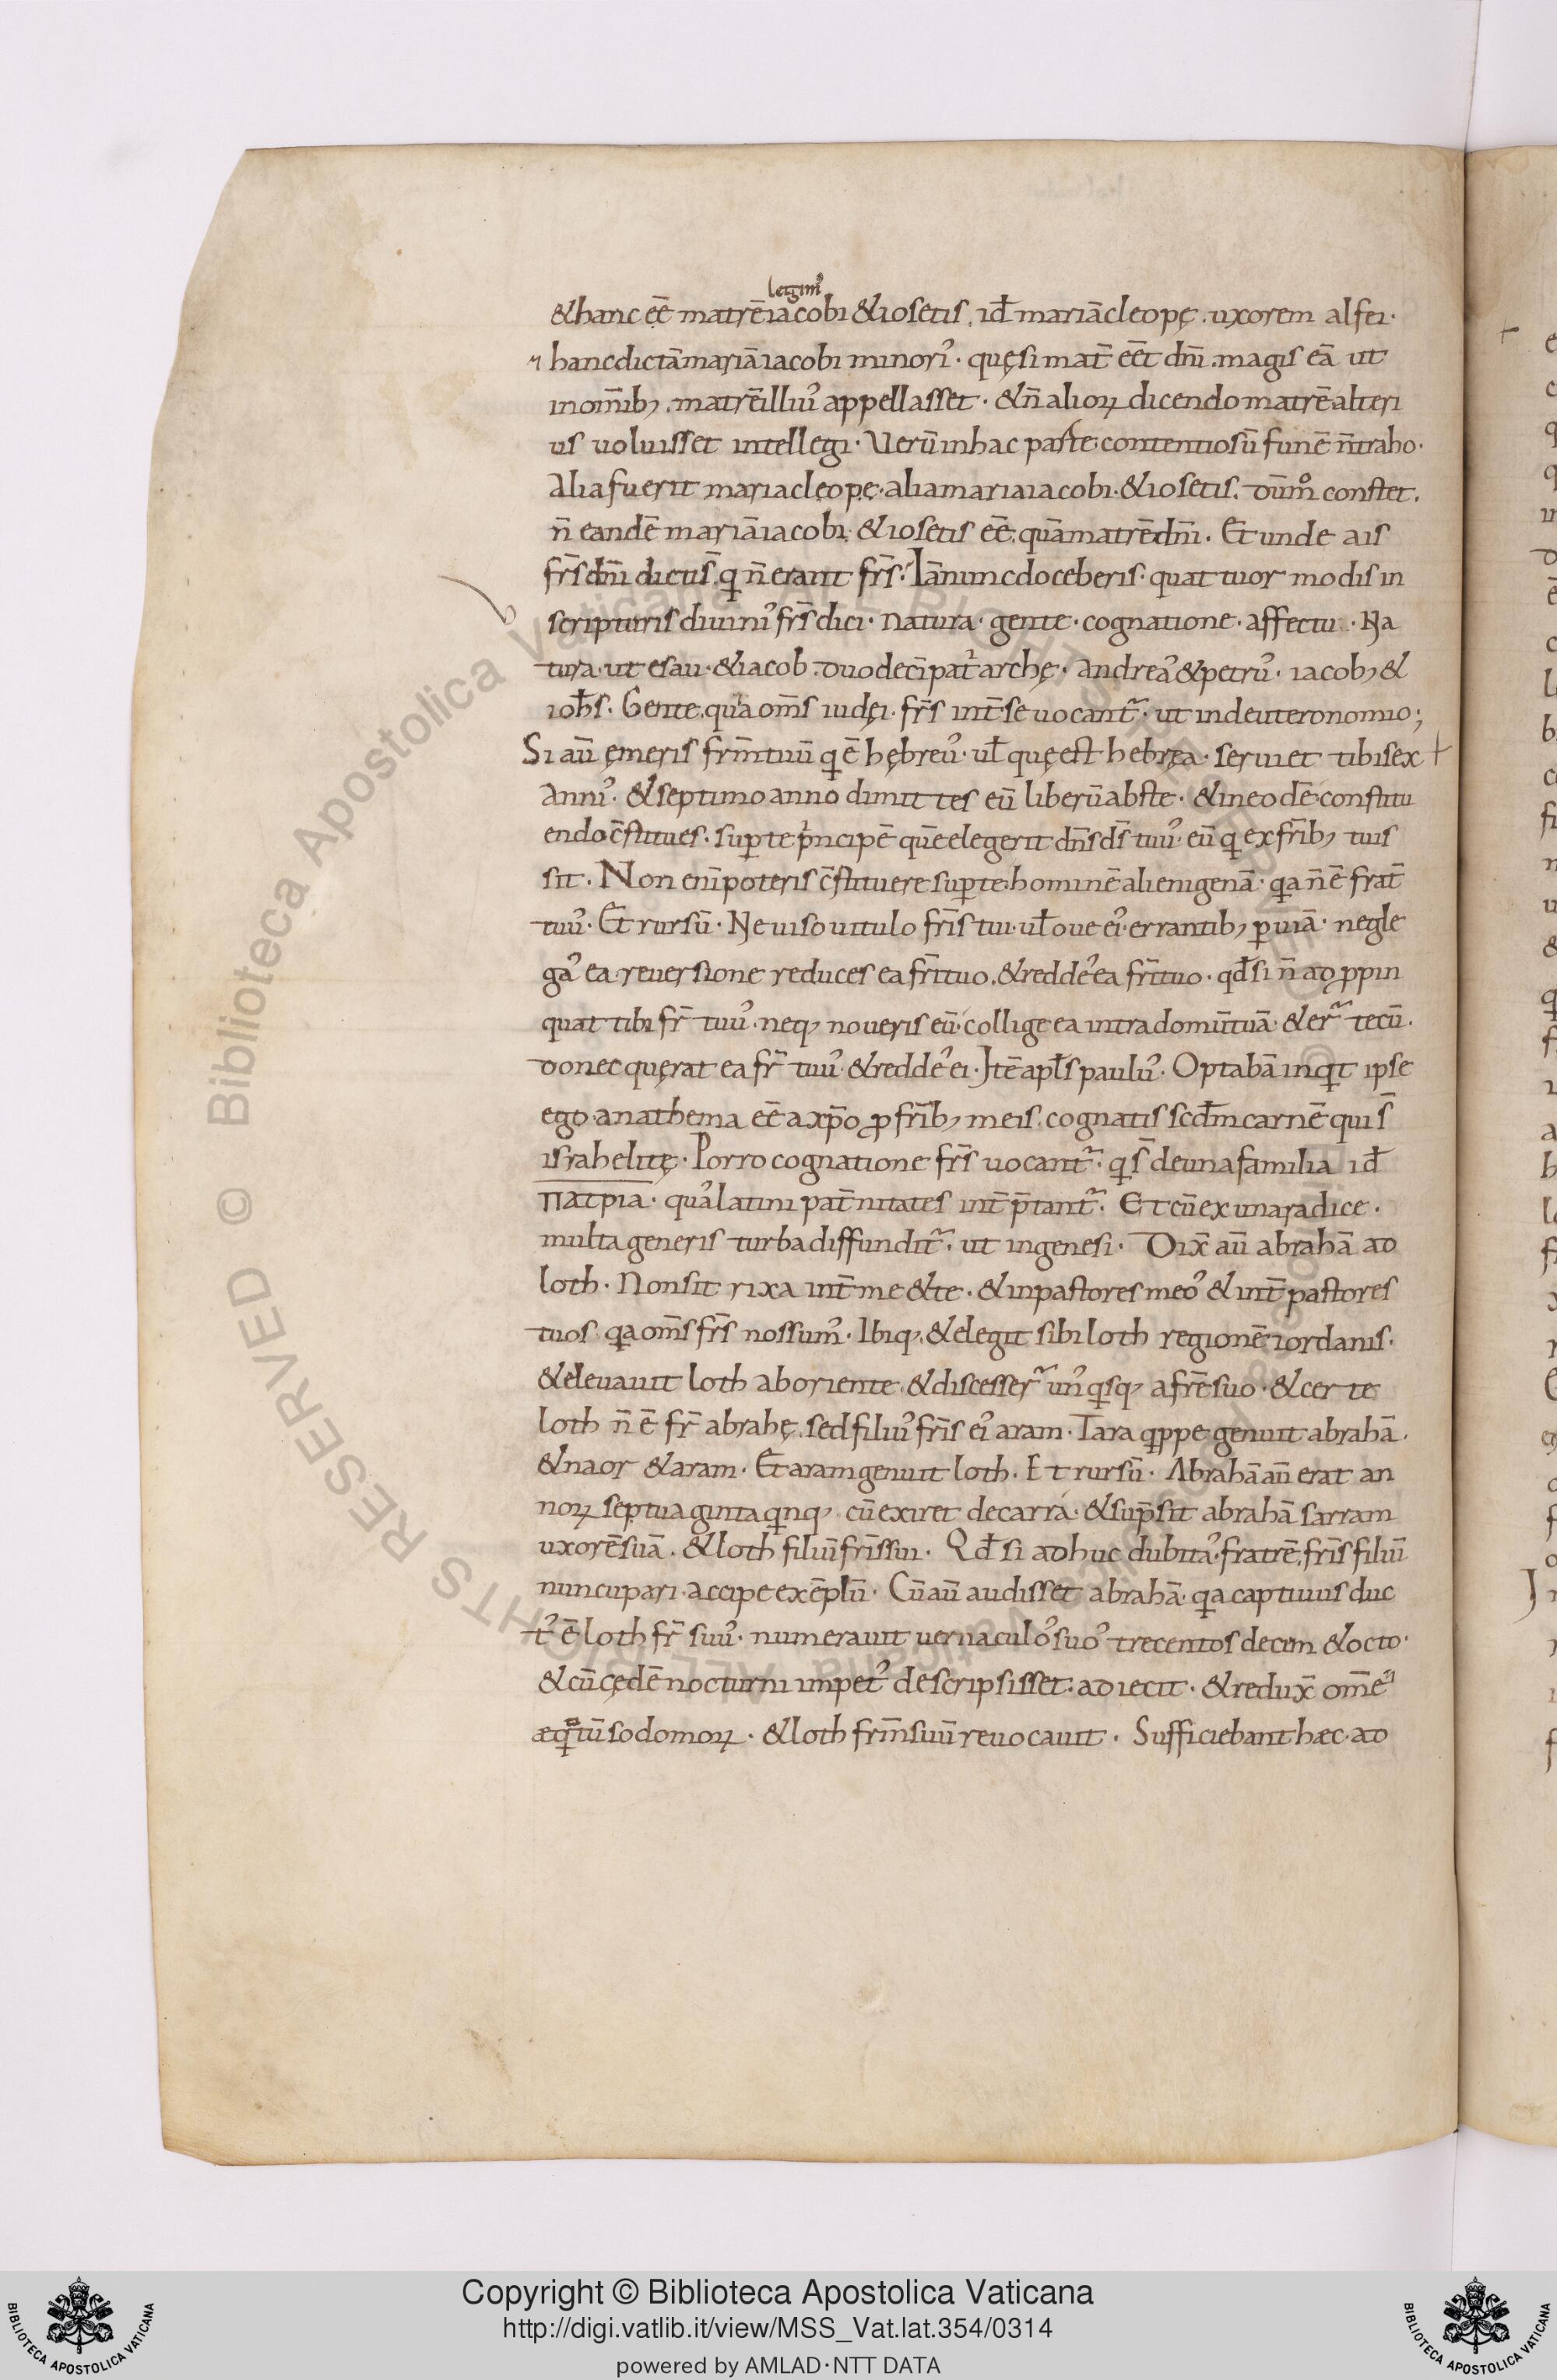 legim᾽
& hanc ēē matrē iacobi & iosetis. id̄ mariā cleopę. uxorem alfei·
hanc dictā mariā iacobi minori᾽· quę si mat̄ eēt dn̄i. magis eā ut
in om̄ib; matrē illiu᾽ appellasset· & n̄ alioꝝ dicendo matrē alteri
us uoluisset intellegi· Uerū in hac parte contentiosū funē n̄ traho·
Alia fuerit maria cleopę· alia maria iacobi· & iosetis. dūm° constet.
n̄ eandē mariā iacobi· & iosetis eē. quā matrē dn̄i. Et unde ais
fr̄s dn̄i dictis̄ q̄ n̄ erant fr̄s. Iā nunc doceberis· quattuor modis in
scripturis diuini᾽ fr̄s dici· natura· gente· cognatione· affectu· Na
tura· ut esau· & iacob. duodecī pat'archę· andrea᾽ & petru᾽· iacob; &
ioh̄s. Gente. qua om̄s iudęi· fr̄s int̄ se uocant᷑· ut in deuteronomio;
Si aū emeris fr̄m tuū q̄ ē hębreu᾽· ul̄ quę est hebręa· seruiet tibi sex
anni᾽· & septimo anno dimittes eū liberū abs te· & in eodē· constitu
endo c̄stitues· suꝑ te p'ncipē quē elegerit dn̄s ds̄ tuu᾽· eū q̄ ex fr̄ib; tuis
sit. Non enī poteris c̄stituere suꝑ te hominē alienigenā· qa n̄ ē frat̄
tuu᾽· Et rursū· Ne uiso uitulo fr̄is tui· ul̄ oue ei᾽· errantib; ꝑ uiā· negle
ga᾽ ea· reuersione reduces ea fr̄i tuo. & redde᾽ ea fr̄i tuo· qd̄ si n̄ adꝓpin
quat tibi fr̄ tuu᾽· neq; noueris eū· collige ea intra domū tuā· & er᷑ tecū.
donec quęrat ea fr̄ tuu᾽· & redde᾽ ei· Itē apl̄s paulu᾽· Optabā inq̄t ipse
ego· anathema eē a xp̄o ꝓ fr̄ib; meis. cognatis scd̄m carnē qui s̄
israhelitę· Porro cognatione fr̄s uocant᷑· q̄ s̄ de una familia id̄
πατρια· qua᾽ latini pat̄nitates int̄p̄tant᷑· Et cū ex una radice.
multa generis turba diffundit᷑· ut in genesi· Dix̄ aū abrahā ad
loth· Non sit rixa int̄ me & te· & in pastores meo᾽ & int̄ pastores
tuos· qa om̄s fr̄s nos sum᾽· Ibiq; & elegit sibi loth regionē iordanis·
& eleuauit loth ab oriente· & discesser᷑ un᾽q̄sq; a fr̄e suo· & certe
loth n̄ ē fr̄ abrahę. sed filiu᾽ fr̄is ei᾽ aram· Tara q̄ppe genuit abrahā·
& naor & aram· Et aram genuit loth. Et rursū· Abrahā aū erat an
noꝝ septuaginta q̄nq; cū exiret de carra· & sup̄sit abrahā sarram
uxorē suā. & loth filiū fr̄is sui. Qd̄ si adhuc dubita᾽· fratrē· fr̄is filiū
nuncupari· accipe exēplū· Cū aū audisset abrahā· qa captiuus duc
t᾽ ē loth fr̄ suu᾽· numerauit uernaculo᾽ suo᾽ trecentos decem & octo·
& cū cędē nocturni impet᾽ descripsisset· adiecit· & redux̄ om̄ē
æq̄tatū sodomoꝝ· & loth fr̄m suū reuocauit. Sufficiebant hæc· ad
© Biblioteca Apostolica Vaticana ALL RIGHTS RESERVED
Copyright © Biblioteca Apostolica Vaticana
http://digi.vatlib.it/view/MSS_Vat.lat.354/0314
powered by AMLAD·NTT DATA
BIBLIOTECA APOSTOLICA VATICANA
BIBLIOTECA APOSTOLICA VATICANA